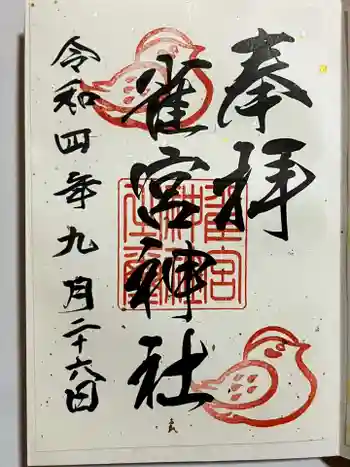 奉拝
雀宮神社
令和四年九月二十六日